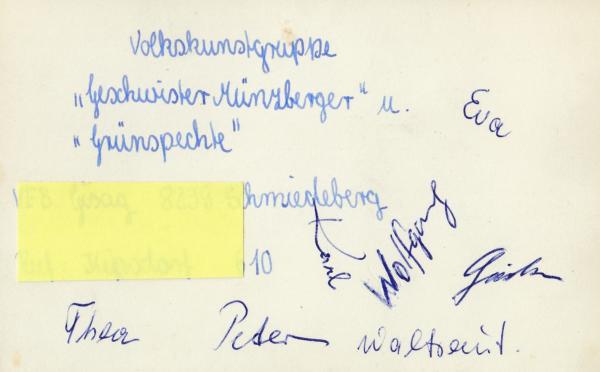 Volkskunstgruppe
„Geschwister Münzberger" u.
„Grünspechte"
Eva
chmiedeberg
10
Karl
Wolfgang
Thea Peter Waltraut.